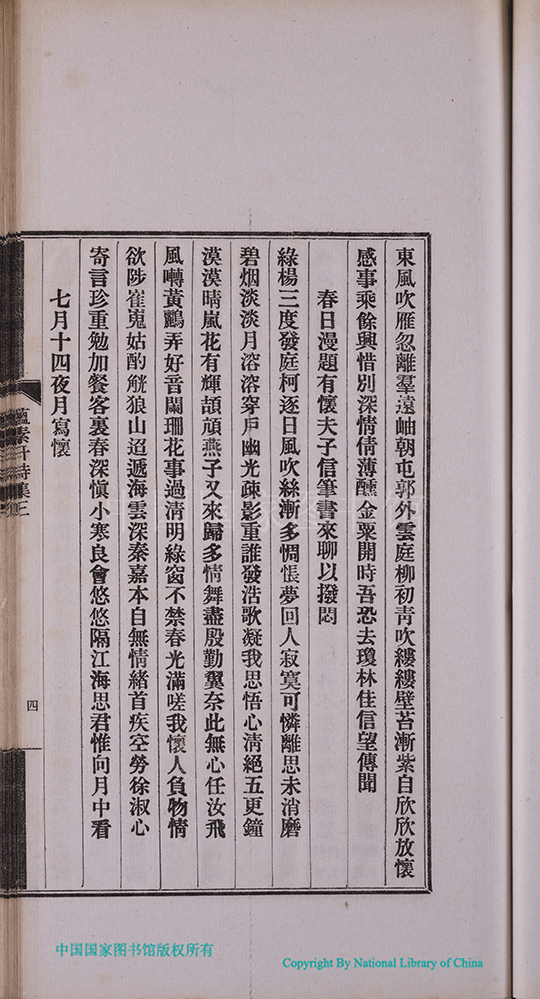 東風吹雁忽離羣遠岫朝屯郭外雲庭柳初青吹縷縷壁苔漸紫自欣欣放懷
感事乘餘興惜別深情倩薄醺金粟開時吾恐去瓊林佳信望傳聞
春日漫題有懷夫子信筆書來聊以撥悶
綠楊三度發庭柯逐日風吹絲漸多惆悵夢回人寂寞可憐離思未消磨
碧烟淡淡月溶溶穿戶幽光疎影重誰發浩歌凝我思悟心清絕五更鐘
漠漠晴嵐花有輝頡頏燕子又來歸多情舞盡殷勤翼奈此無心任汝飛
風囀黃鸝弄好音闌珊花事過清明綠窗不禁春光滿嗟我懷人負物情
欲陟崔嵬姑酌觥狼山迢遞海雲深秦嘉本自無情緒首疾空勞徐淑心
寄言珍重勉加餐客裏春深愼小寒良會悠悠隔江海思君惟向月中看
七月十四夜月寫懷
蘊素軒詩集
四
中国国家图书馆版权所有
Copyright By National Library of China